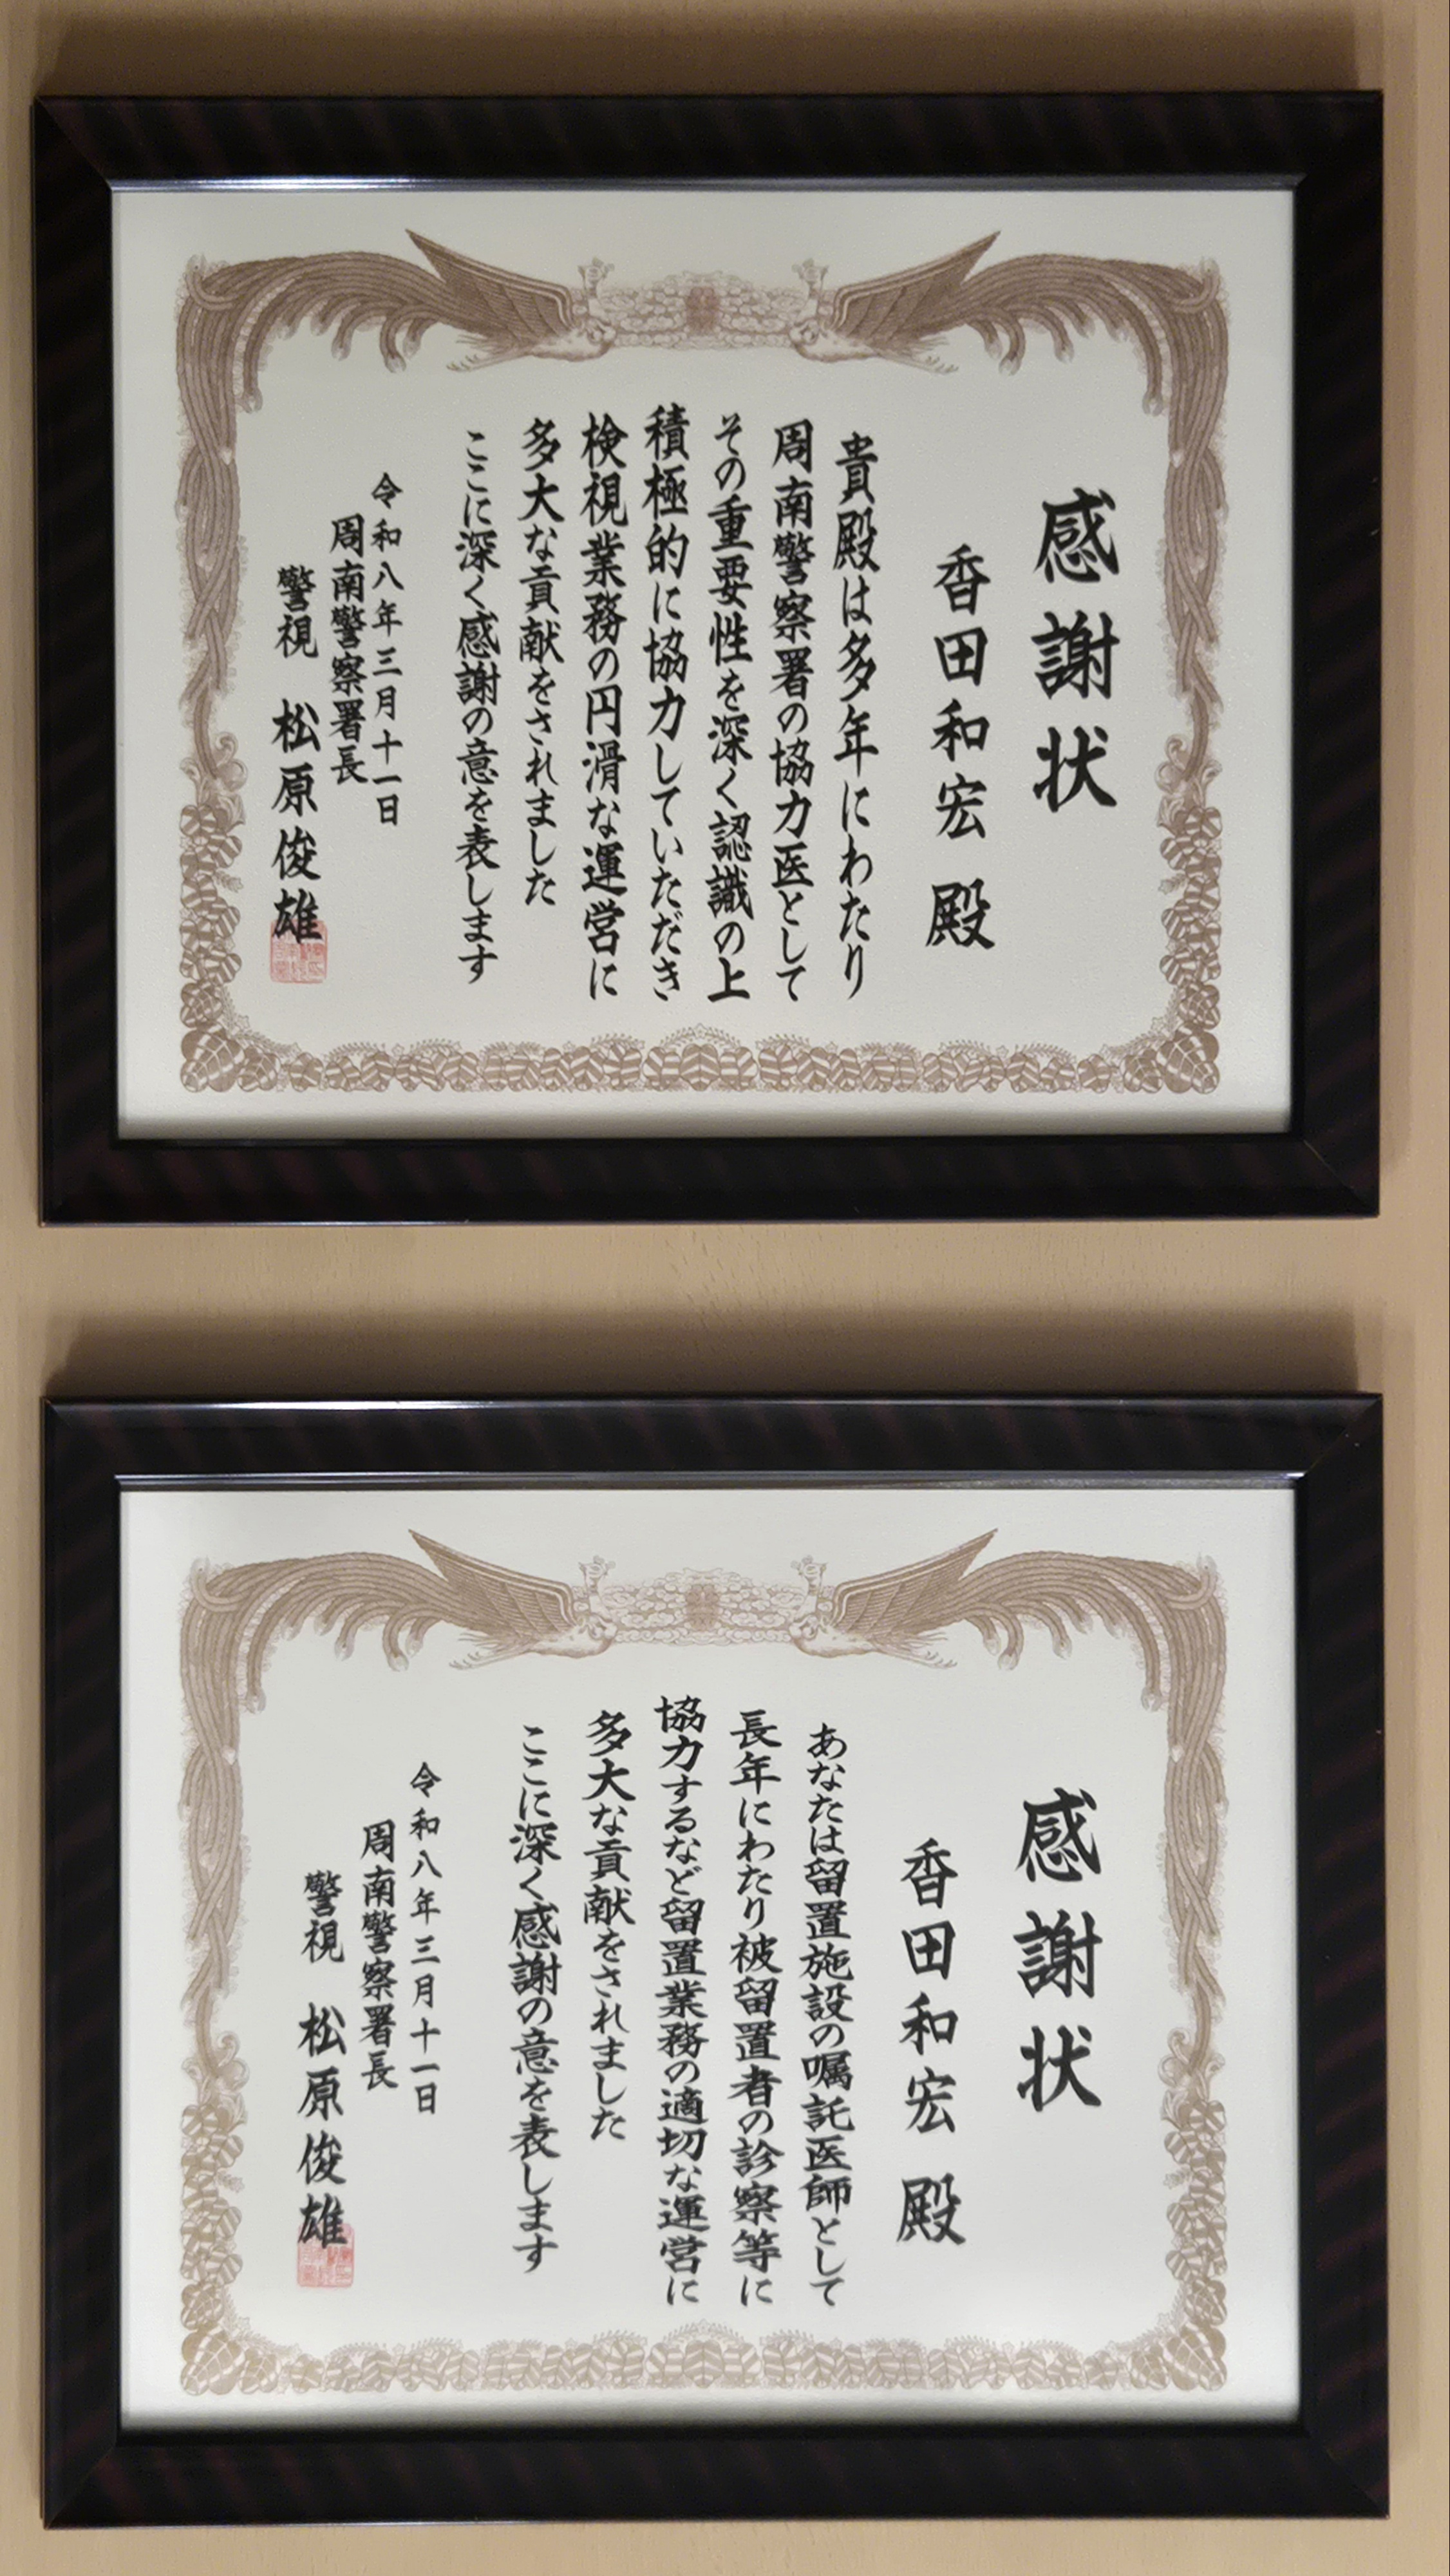 感謝状
香田和宏 殿
貴殿は多年にわたり
周南警察署の協力医として
その重要性を深く認識の上
積極的に協力していただき
検視業務の円滑な運営に
多大な貢献をされました
ここに深く感謝の意を表します
令和八年三月十一日
周南警察署長
警視 松原俊雄
感謝状
香田和宏 殿
あなたは留置施設の嘱託医師として
長年にわたり被留置者の診察等に
協力するなど留置業務の適切な運営に
多大な貢献をされました
ここに深く感謝の意を表します
令和八年三月十一日
周南警察署長
警視 松原俊雄